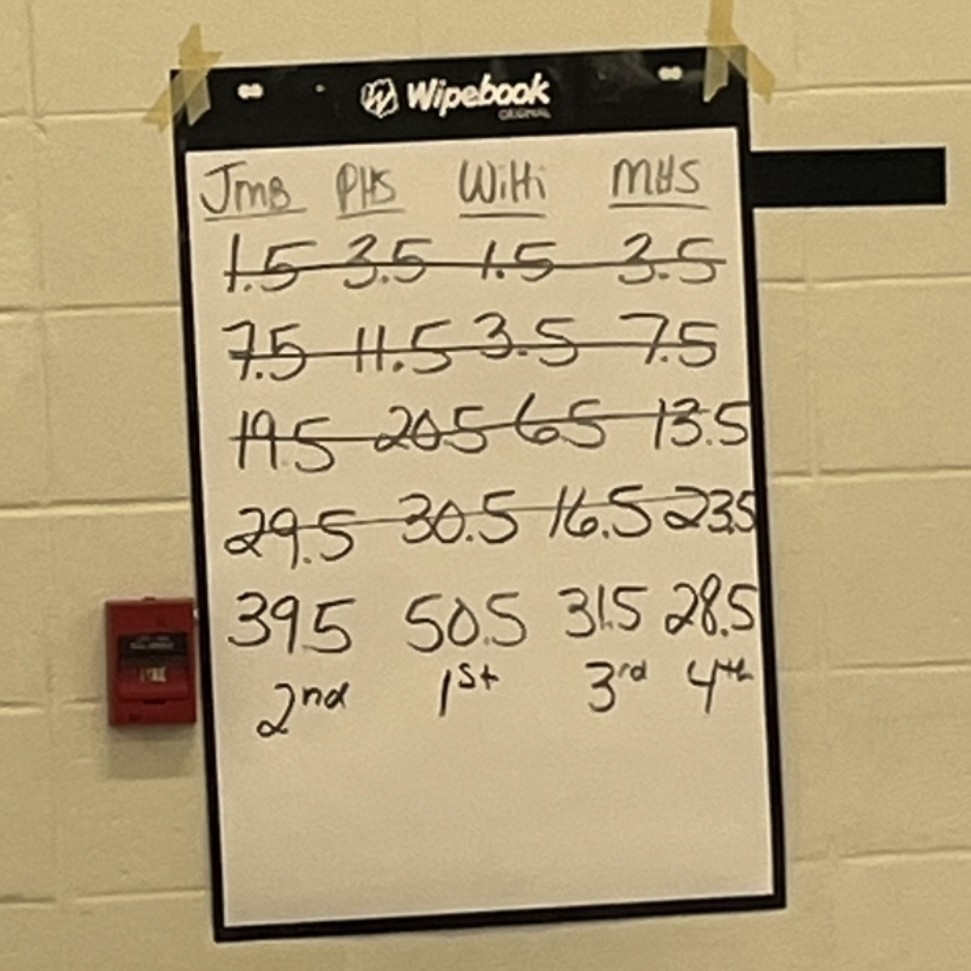 Wipebook
ORIGINAL
JMB PHS WiHi MHS
1.5 3.5 1.5 3.5
7.5 11.5 3.5 7.5
19.5 20.5 6.5 13.5
29.5 30.5 16.5 23.5
39.5 50.5 31.5 28.5
2nd 1st 3rd 4th